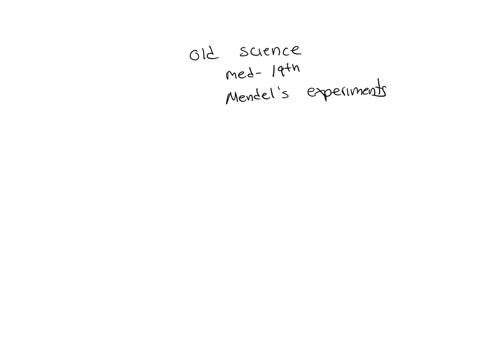 old science
med- 19th
Mendel's experiments